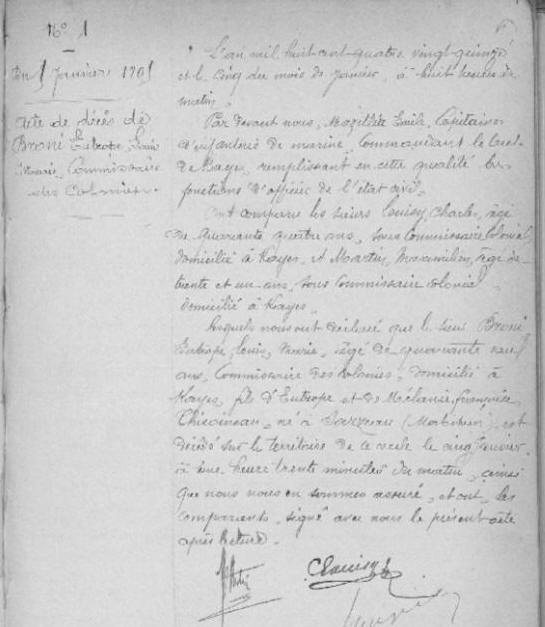 N° 1
5 Janvier 1895
Acte de décès de
Broni Eutrope, Louis
Marie, Commissaire
des Colonies.
L'an mil huit cent quatre vingt quinze
et le cinq du mois de Janvier, à huit heures du
matin.
Par devant nous, Emile, Capitaine
d'infanterie de marine, Commandant le Cercle
de Kayes, remplissant en cette qualité les
fonctions d'officier de l'état civil.
Ont comparu les sieurs Louisy, Charles, âgé
de quarante quatre ans, sous Commissaire Colonial,
domicilié à Kayes, et Martin, Maximilien, âgé de
trente et un ans, sous Commissaire colonial
domicilié à Kayes.
Lesquels nous ont déclaré que le sieur Broni
Eutrope, Louis, Marie, âgé de quarante neuf
ans, Commissaire des Colonies, domicilié à
Kayes, fils d'Eutrope et de Mélanie, Françoise
né à Sarzeau (Morbihan), est
décédé sur le territoire de ce cercle le cinq Janvier
à une heure trente minutes du matin, ainsi
que nous nous en sommes assuré, et ont, les
comparants, signé avec nous le présent acte
après lecture.
CLouisy